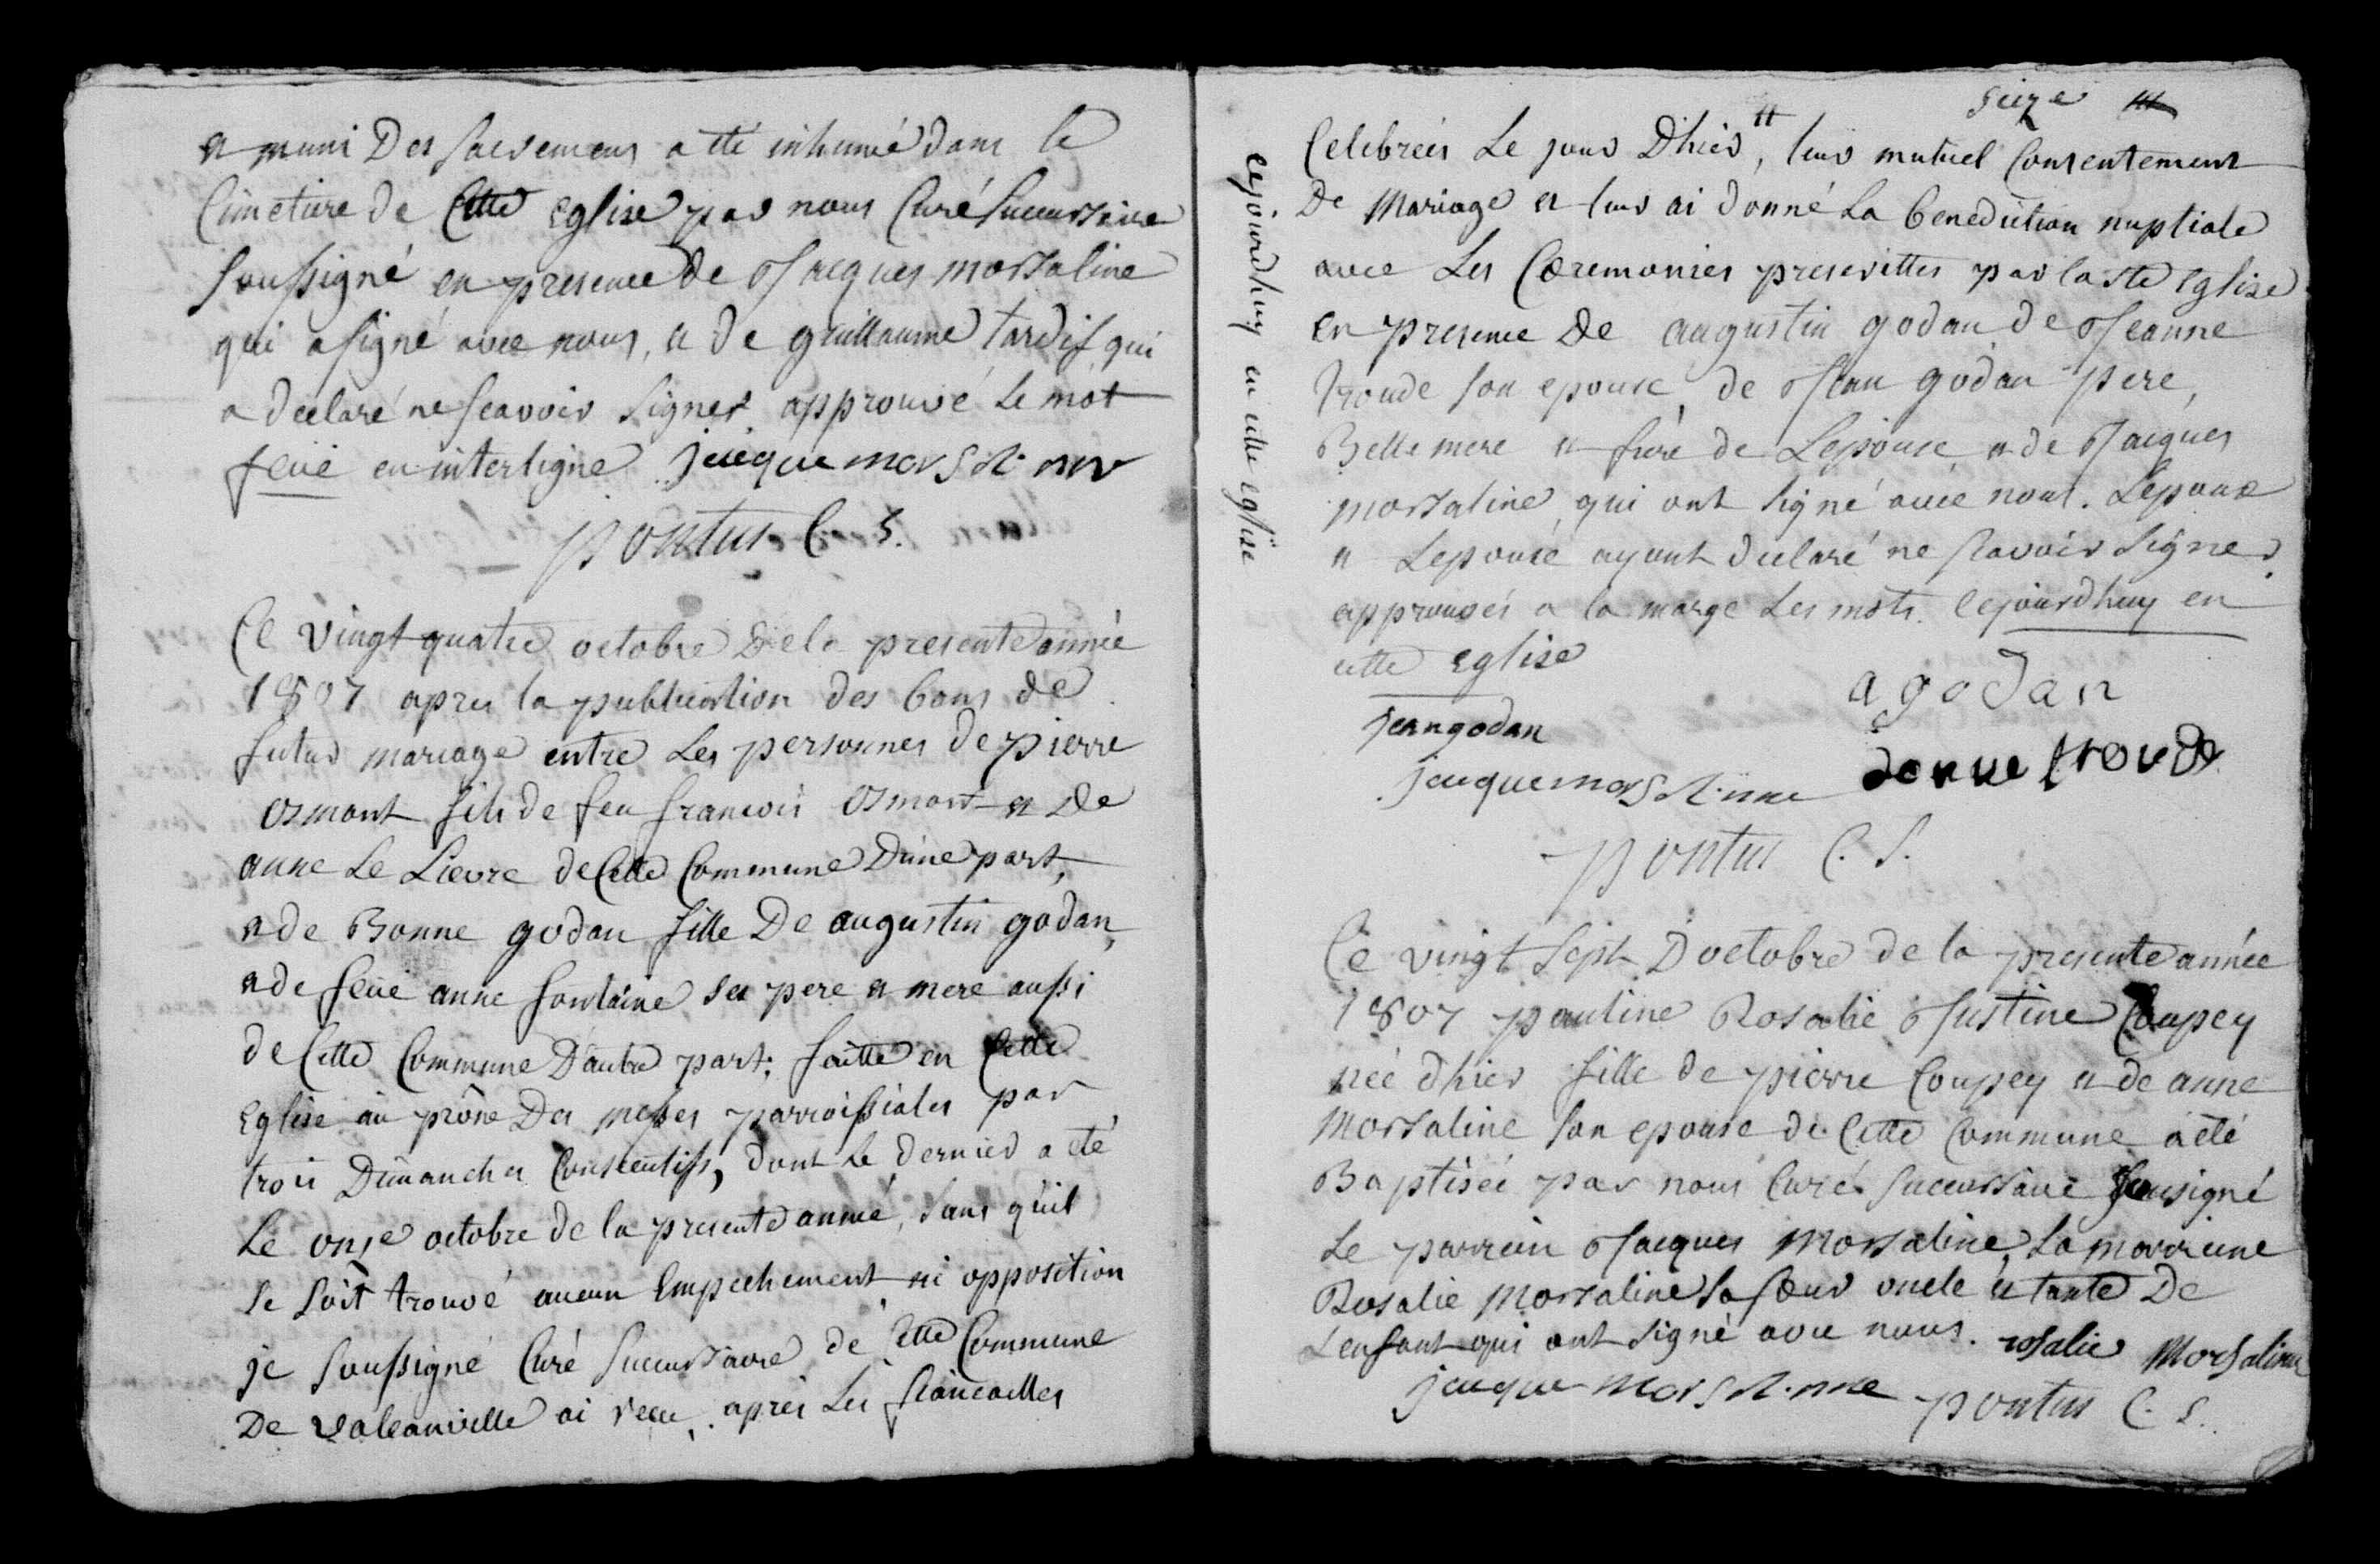 et muni Des sacremens a été inhumé dans le
Cimetiere de Cette eglise par nous Curé Succursaire
soussigné en presence de Jacques morsaline
qui a signé avec nous, et de guillaume tardif qui
a declaré ne scavoir signer approuvé Le mot
feüe en interligne jacque mors
pontus C. S.
Ce vingt quatre octobre De la presente année
1807 apres la publication des bans de
futur mariage entre Les personnes de pierre
Osmont fils de feu francois Osmont et De
anne Le Lievre de Cette Commune D'une part,
et de Bonne godan fille De augustin godan,
et de feüe anne fontaine ses pere et mere aussi
de Cette Commune D'autre part; faitte en Cette
Eglise au prône Des messes parroissiales par
trois Dimanches Consecutifs, dont Le dernier a été
Le onze octobre de la presente année, sans qu'il
se soit trouvé aucun Empechement ni opposition
je soussigné Curé Succursaire de Cette Commune
De valcanville ai recu, apres Les fiancailles
seize
Celebrées Le jour D'hier, leur mutuel Consentement
De Mariage et leur ai donné La benediction nuptiale
avec Les Cæremonies prescrittes par la ste Eglise
en presence De augustin godan, de Jeanne
troude son epouse, de Jean godan pere,
Belle mere et frere de L'epouse, et de Jacques
morsaline, qui ont signé avec nous. L'epoux
et L'epouse ayant declaré ne scavoir signer,
approuvés a la marge Les mots. Cejourdhuy en
cette Eglise
cejourdhuy en cette eglise
a godan
jean godan
troude
jacque mors
pontus C. S.
Ce vingt sept D'octobre de la presente année
1807 pauline Rosalie Justine Coupey
née d'hier fille de pierre Coupey et de anne
Morsaline son epouse de Cette Commune a été
Baptisée par nous Curé Succursaire sousigné
Le parrain Jacques Morsaline, La marrienne
Rosalie Morsaline sa soeur oncle et tante De
L'enfant qui ont signé avec nous. rosalie Morsaline
jacque mors
pontus C. S.